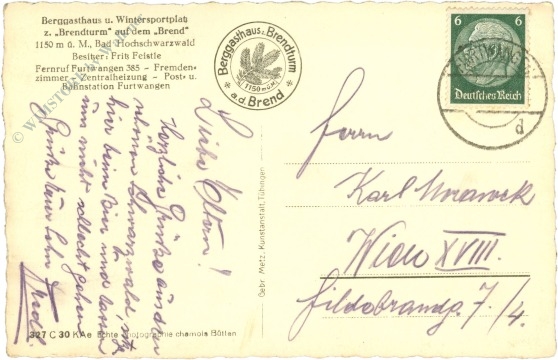 Berggasthaus u. Wintersportplatz
z. „Brendturm“ auf dem „Brend“
1150 m ü. M., Bad. Hochschwarzwald
Besitzer: Fritz Feistle
Fernruf Furtwangen 385 - Fremden-
zimmer - Zentralheizung - Post- u.
Bahnstation Furtwangen
Berggasthaus z. Brendturm
1150 m ü. M.
a.d. Brend
6 6
Deutsches Reich
FURTWANGEN
d
Liebe Eltern!
Herzliche Grüße aus dem
schönen Schwarzwald, sitze
hier beim Bier und lasse
mirs nicht schlecht gehen
Grüße Euer Sohn
Herrn
Karl
Wien XVIII.
Hildebrandg. 7/4.
Gebr. Metz, Kunstanstalt, Tübingen
327 C 30 KAe Echte Photographie chamois Bütten